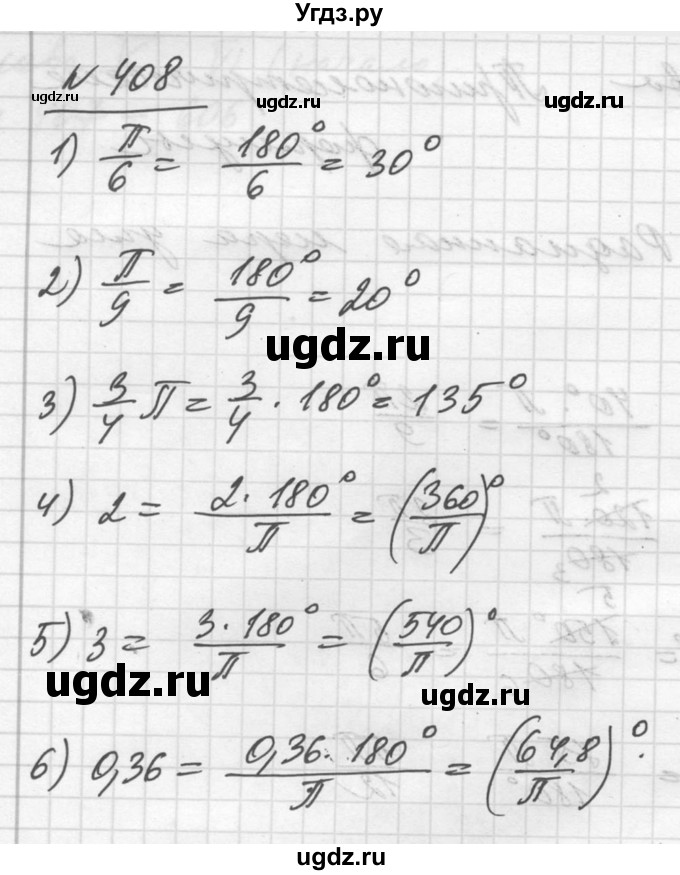 Угдз.ру
№ 408
ugdz.ru ugdz.ru ugdz.ru
1) π/6 = 180°/6 = 30°
2) π/9 = 180°/9 = 20°
ugdz.ru
3) 3/4 π = 3/4 · 180° = 135°
4) 2 = 2·180°/π = (360/π)°
5) 3 = 3·180°/π = (540/π)°
ugdz.ru ugdz.ru
6) 0,36 = 0,36·180°/π = (64,8/π)°.
ugdz.ru